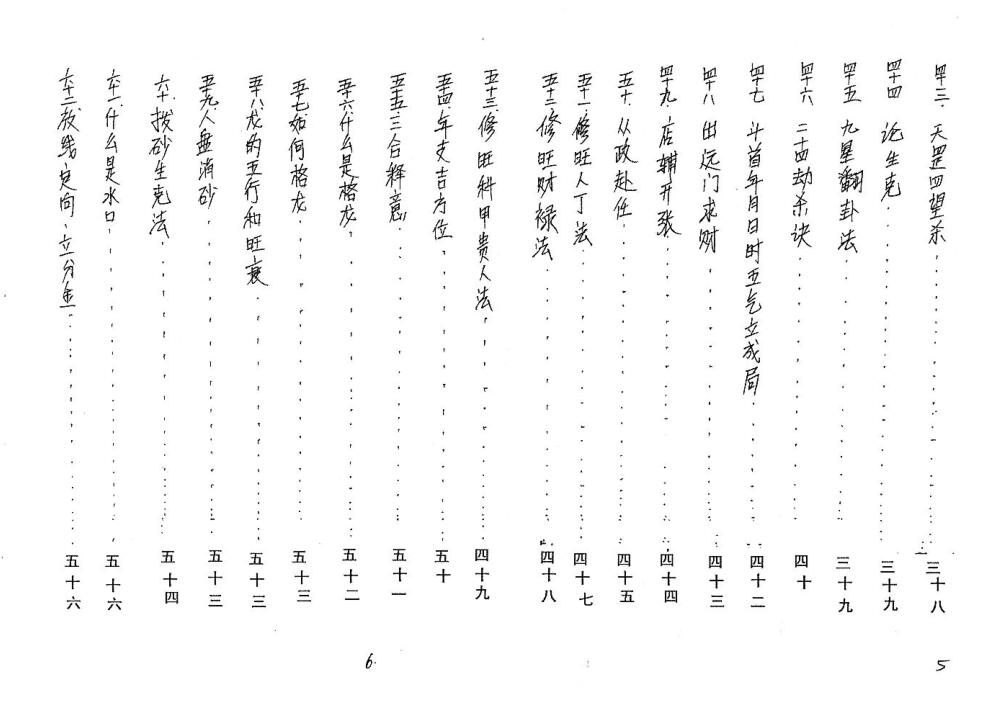 四十三、天罡四望杀..........三十八
四十四 论生克..........三十九
四十五 九星翻卦法..........三十九
四十六 二十四劫杀诀..........四十
四十七 斗首年月日时五气立成局..........四十二
四十八 出远门求财..........四十三
四十九、店辅开张..........四十四
五十、从政赴任..........四十五
五十一、修旺人丁法..........四十七
五十二、修旺财禄法..........四十八
5
五十三、修旺科甲贵人法..........四十九
五十四、年支吉方位..........五十
五十五、三合释意..........五十一
五十六、什么是格龙..........五十二
五十七如何格龙..........五十三
五十八龙的五行和旺衰..........五十三
五十九、人盘消砂..........五十三
六十、拨砂生克法..........五十四
六十一、什么是水口..........五十六
六十二、拨线定向、立分金..........五十六
6.